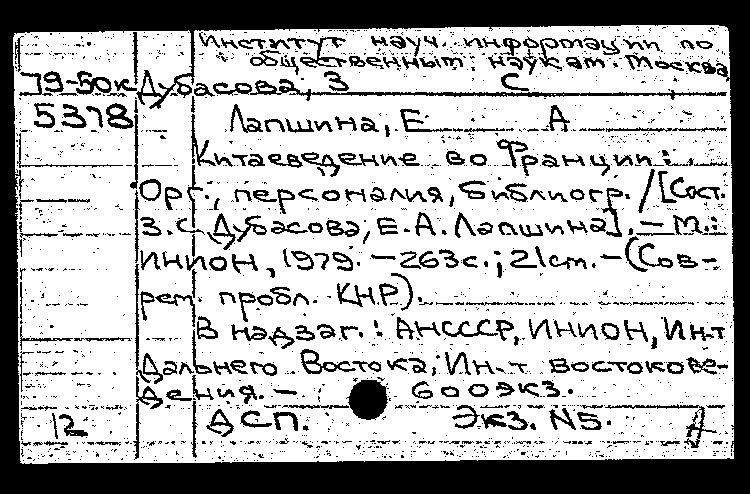 Институт науч. информации по
общественным наукам. Москва
79-50к Дубасова, З С
5378 Лапшина, Е А
Китаеведение во Франции:
Орг., персоналия, библиогр. / [Сост.
З.С Дубасова, Е.А. Лапшина]. — М.:
ИНИОН, 1979. — 263с.; 21см. — (Сов-
рем. пробл. КНР).
В надзаг.: АНСССР, ИНИОН, Ин-т
Дальнего Востока, Ин-т востокове-
дения. — 600экз.
12 ДСП. Экз. №5.